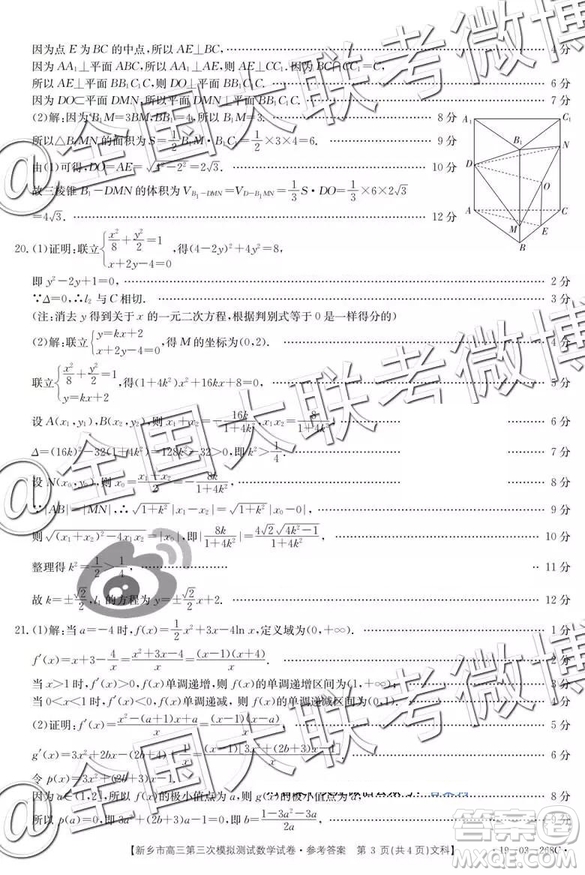 因为点 E 为 BC 的中点,所以 AE⊥BC, 4 分
因为 AA₁⊥平面 ABC, AA₁∥CC₁,则 AE⊥CC₁,因为 BC∩CC₁=C,
所以 AE⊥平面 BB₁C₁C,则 DO⊥平面 BB₁C₁C. 6 分
因为 DO⊂平面 DMN,所以平面 DMN⊥平面 BB₁C₁C. 7 分
(2)解:因为 B₁M=3BM,BB₁=4,所以 B₁M=3. 8 分
所以△B₁MN 的面积为 S=1/2×B₁M·B₁C₁=1/2×3×4=6. 9 分
由(1)可得,DO=AE=√(4²−2²)=2√3. 10 分
故三棱锥 B₁−DMN 的体积为 V_{B₁−DMN}=V_{D−B₁MN}=1/3 S·DO=1/3×6×2√3
=4√3. 12 分
A₁ C₁ B₁ N D O A C M E B
20. (1)证明:联立{x²/8+y²/2=1, x+2y−4=0 ,得(4−2y)²+4y²=8,
即 y²−2y+1=0, 2 分
∵Δ=0,∴l₂ 与 C 相切. 3 分
(注:消去 y 得到关于 x 的一元二次方程,根据判别式等于 0 是一样得分的)
(2)解:联立{y=kx+2, x+2y−4=0 ,得 M 的坐标为(0,2). 4 分
联立{x²/8+y²/2=1, y=kx+2 ,得(1+4k²)x²+16kx+8=0, 5 分
设 A(x₁,y₁),B(x₂,y₂),则 x₁+x₂=−16k/(1+4k²),x₁x₂=8/(1+4k²), 6 分
Δ=(16k)²−32(1+4k²)=128k²−32>0,即 k²>1/4, 7 分
设 N(x₀,y₀),则 x₀= 8k/(1+4k²), 8 分
∵|AB|=|MN|,∴√(1+k²)|x₁−x₂|=√(1+k²)|x₀−0|, 9 分
则√((x₁+x₂)²−4x₁x₂)=|x₀|,即|8k/(1+4k²)|=4√2√(4k²−1)/(1+4k²), 10 分
整理得 k²=1/2>1/4, 11 分
故 k=±√2/2,l₁ 的方程为 y=±√2/2 x+2. 12 分
21. (1)解:当 a=−4 时,f(x)=1/2 x²+3x−4ln x,定义域为(0,+∞). 1 分
f′(x)=x+3−4/x=(x²+3x−4)/x=(x−1)(x+4)/x. 2 分
当 x>1 时,f′(x)>0,f(x)单调递增,则 f(x)的单调递增区间为(1,+∞).
当 0<x<1 时,f′(x)<0,f(x)单调递减,则 f(x)的单调递减区间为(0,1). 4 分
(2)证明:f′(x)=(x²−(a+1)x+a)/x= 5 分
g′(x)=3x²+2bx−(2b+3)+ =(x−1)[3x²+(2b+3)x−1]/x. 6 分
令 p(x)=3x²+(2b+3)x−1.
因为 a∈(1,2],所以 f(x)的极小值点为 a,则 g( 8 分
所以 p(a)=0,即 3a²+(2b+3)a−1=0,即 b=(1−3a²−3a)/2a. 9 分
【新乡市高三第三次模拟测试数学试卷·参考答案 第 3 页(共 4 页)文科】 ·19−03−268C·
@全国大联考微博
@全国大联考微博
@全国大联考微博
答案圈
MXQE.COM